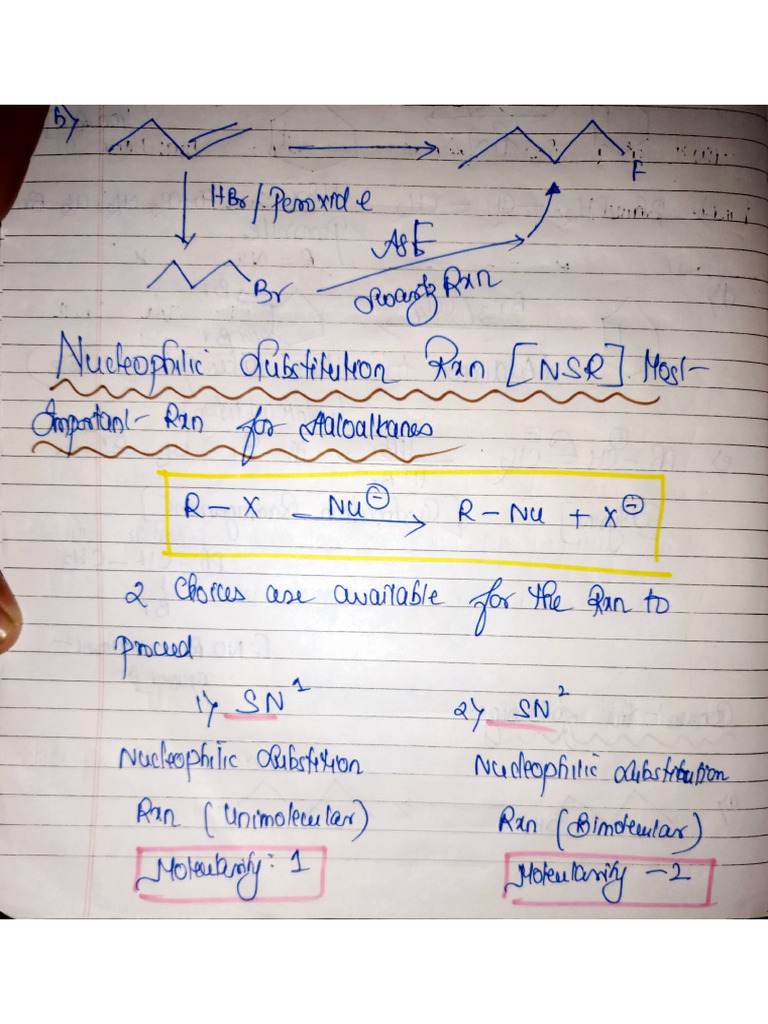 b)
F
HBr/Peroxide
AgF
Br
Swartz Rxn
Nucleophilic Substitution Rxn [NSR] Most
Important Rxn for Haloalkanes
R – X —Nu⊖→ R – Nu + X⊖
2 Choices are available for the Rxn to
proceed
1) SN¹ 2) SN²
Nucleophilic Substition Nucleophilic Substitution
Rxn (Unimolecular) Rxn (Bimolecular)
Molecularity: 1 Molecularity – 2